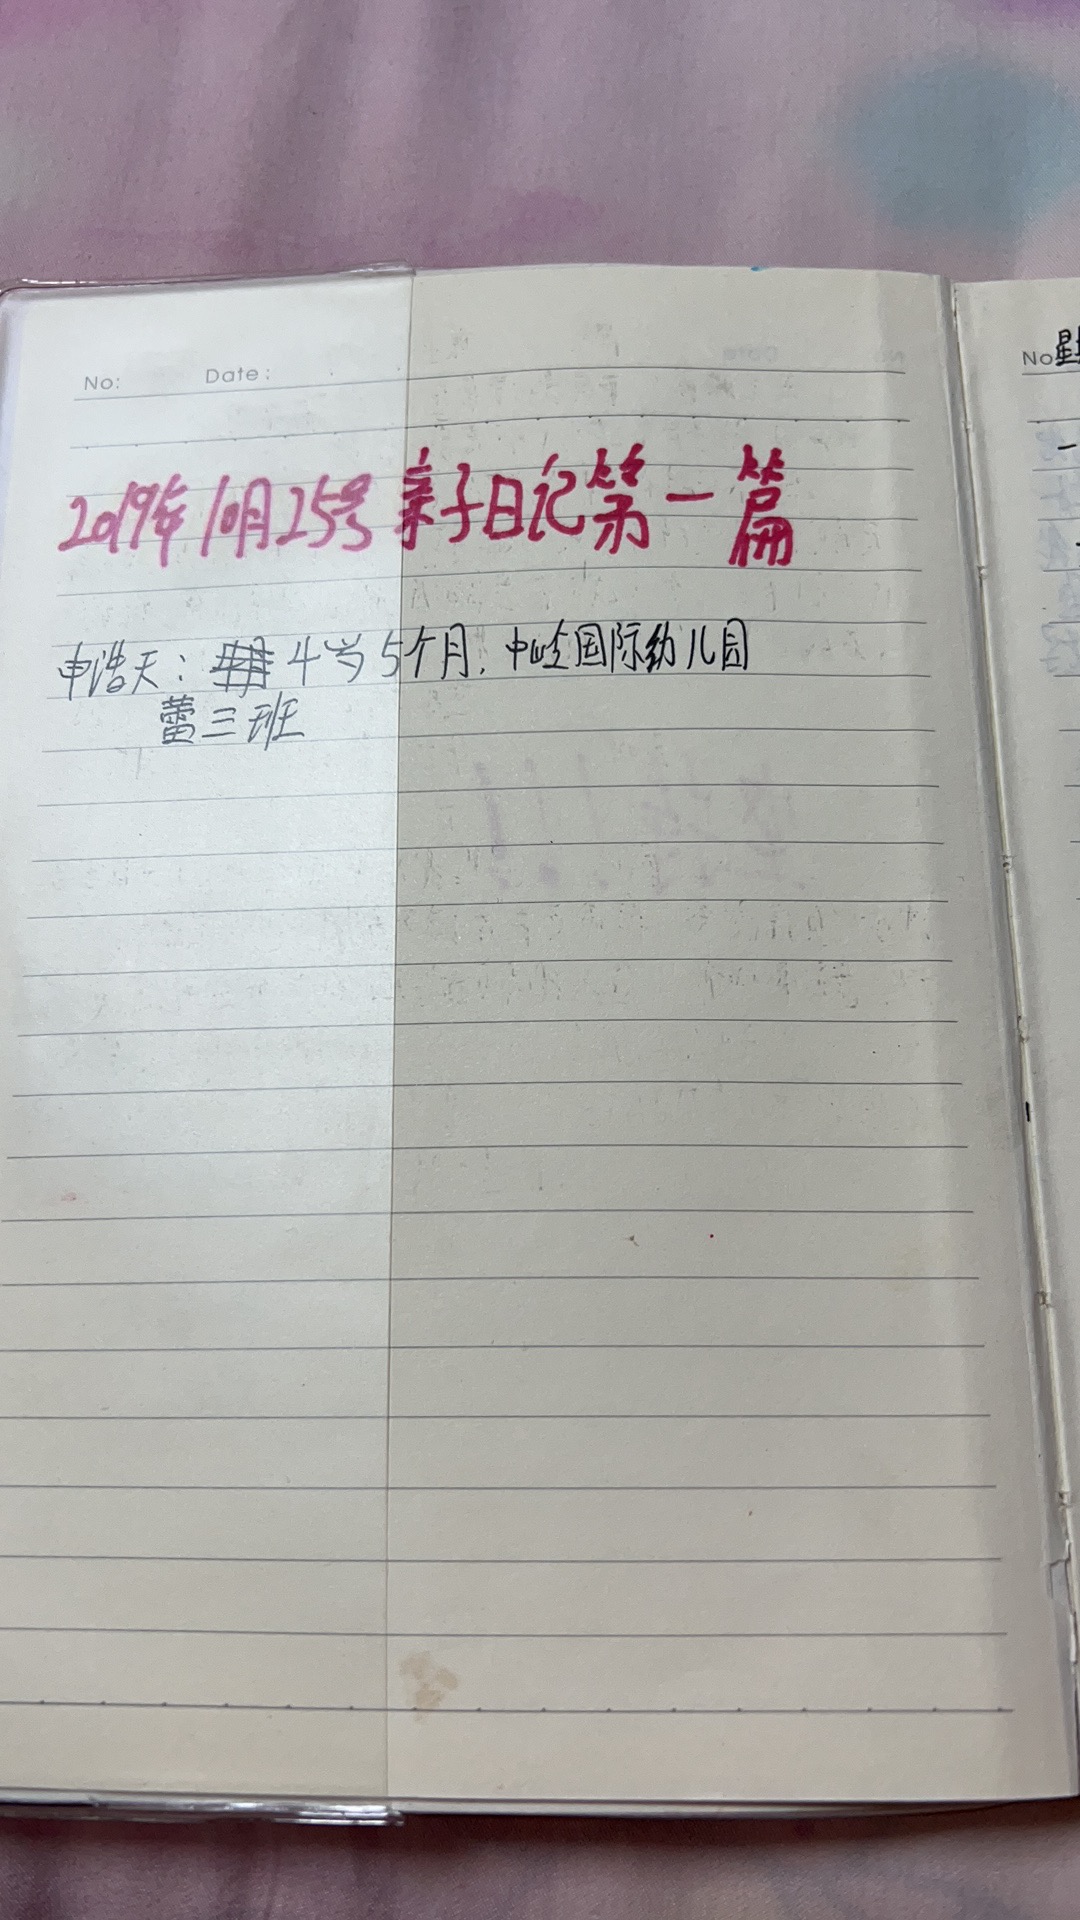 No: Date:
2019年10月25号 亲子日记第一篇
申浩天: 4岁5个月, 中屹国际幼儿园
蕾三班
No